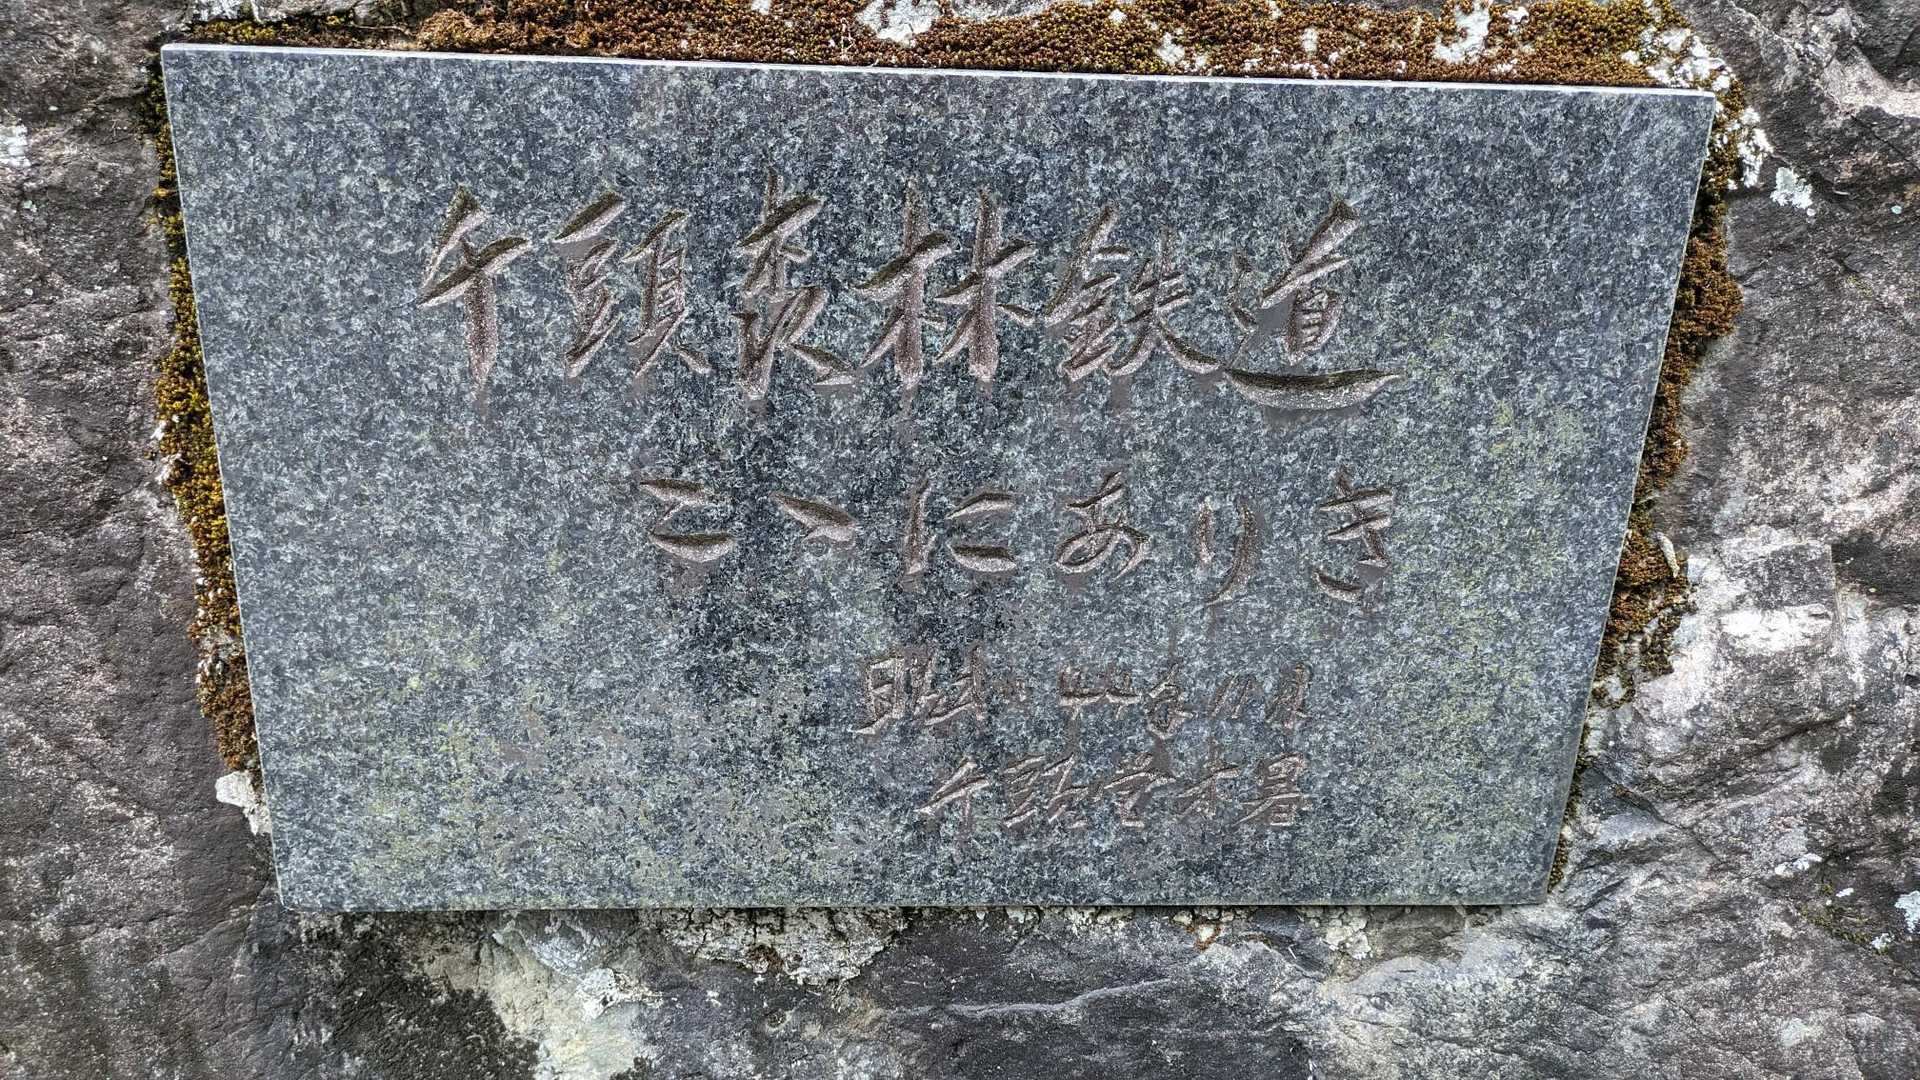 千頭森林鉄道
こゝにありき
昭和 年 月
千頭営林署